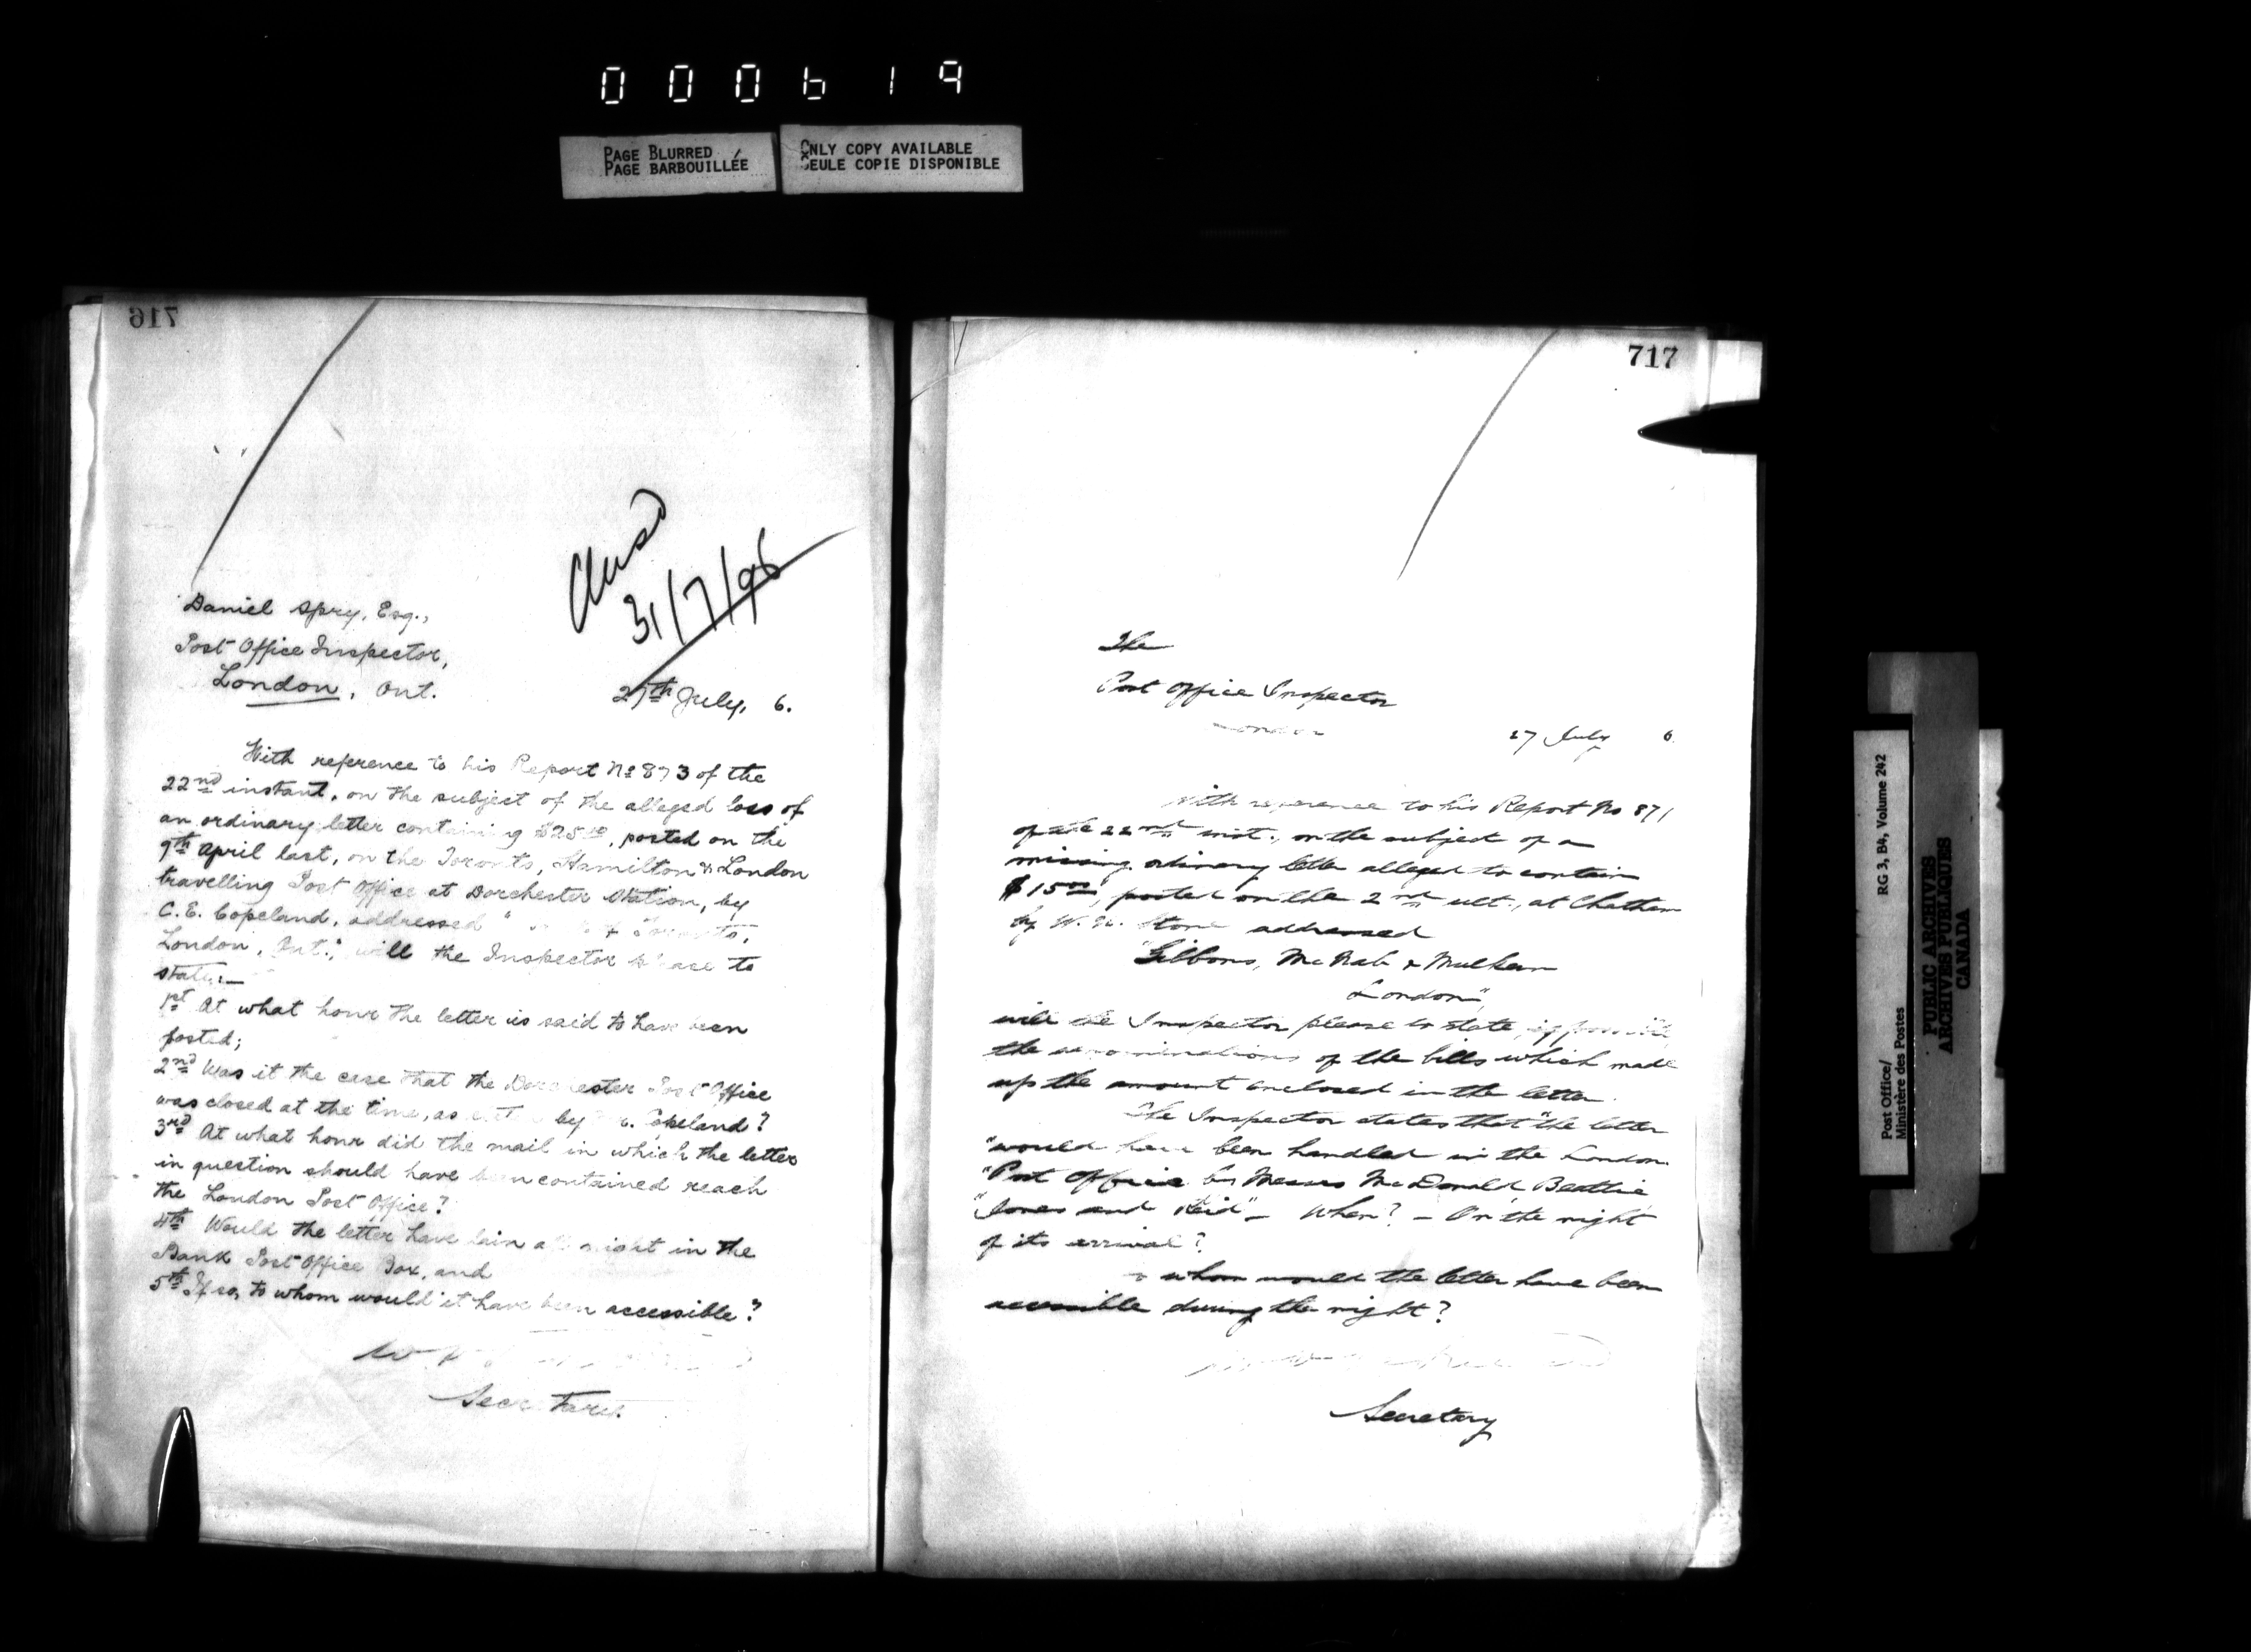 000619
PAGE BLURRED
PAGE BARBOUILLÉE
ONLY COPY AVAILABLE
SEULE COPIE DISPONIBLE
716
Ansd
31/7/96
Daniel Spry, Esq.,
Post Office Inspector,
London, Ont.
27th July, 6.
With reference to his Report No 873 of the
22nd instant, on the subject of the alleged loss of
an ordinary letter containing $25.00, posted on the
9th April last, on the Toronto, Hamilton & London
travelling Post Office at Dorchester Station, by
C. E. Copeland, addressed " of Toronto,
London, Ont.", will the Inspector please to
state:—
1st At what hour the letter is said to have been
posted;
2nd Was it the case that the Dorchester Post Office
was closed at the time, as by Copeland?
3rd At what hour did the mail in which the letter
in question should have been contained reach
the London Post Office?
4th Would the letter have lain all night in the
Bank Post Office Box, and
5th If so, to whom would it have been accessible?
Secretary
717
The
Post Office Inspector
London
27 July 6
With reference to his Report No 871
of the 22nd inst., on the subject of a
missing ordinary letter alleged to contain
$15.00, posted on the 2nd ult., at Chatham
by W. Stone addressed
"Gibbons, McNab & Mulkern
London",
will the Inspector please to state, if possible
the denominations of the bills which made
up the amount enclosed in the letter.
The Inspector states that "the letter
"would have been handled in the London
"Post Office by Messrs McDonald, Beattie
"Jones and Reid" — When? — On the night
of its arrival?
To whom would the letter have been
accessible during the night?
Secretary
Post Office/
Ministère des Postes
RG 3, B4, Volume 242
PUBLIC ARCHIVES
ARCHIVES PUBLIQUES
CANADA